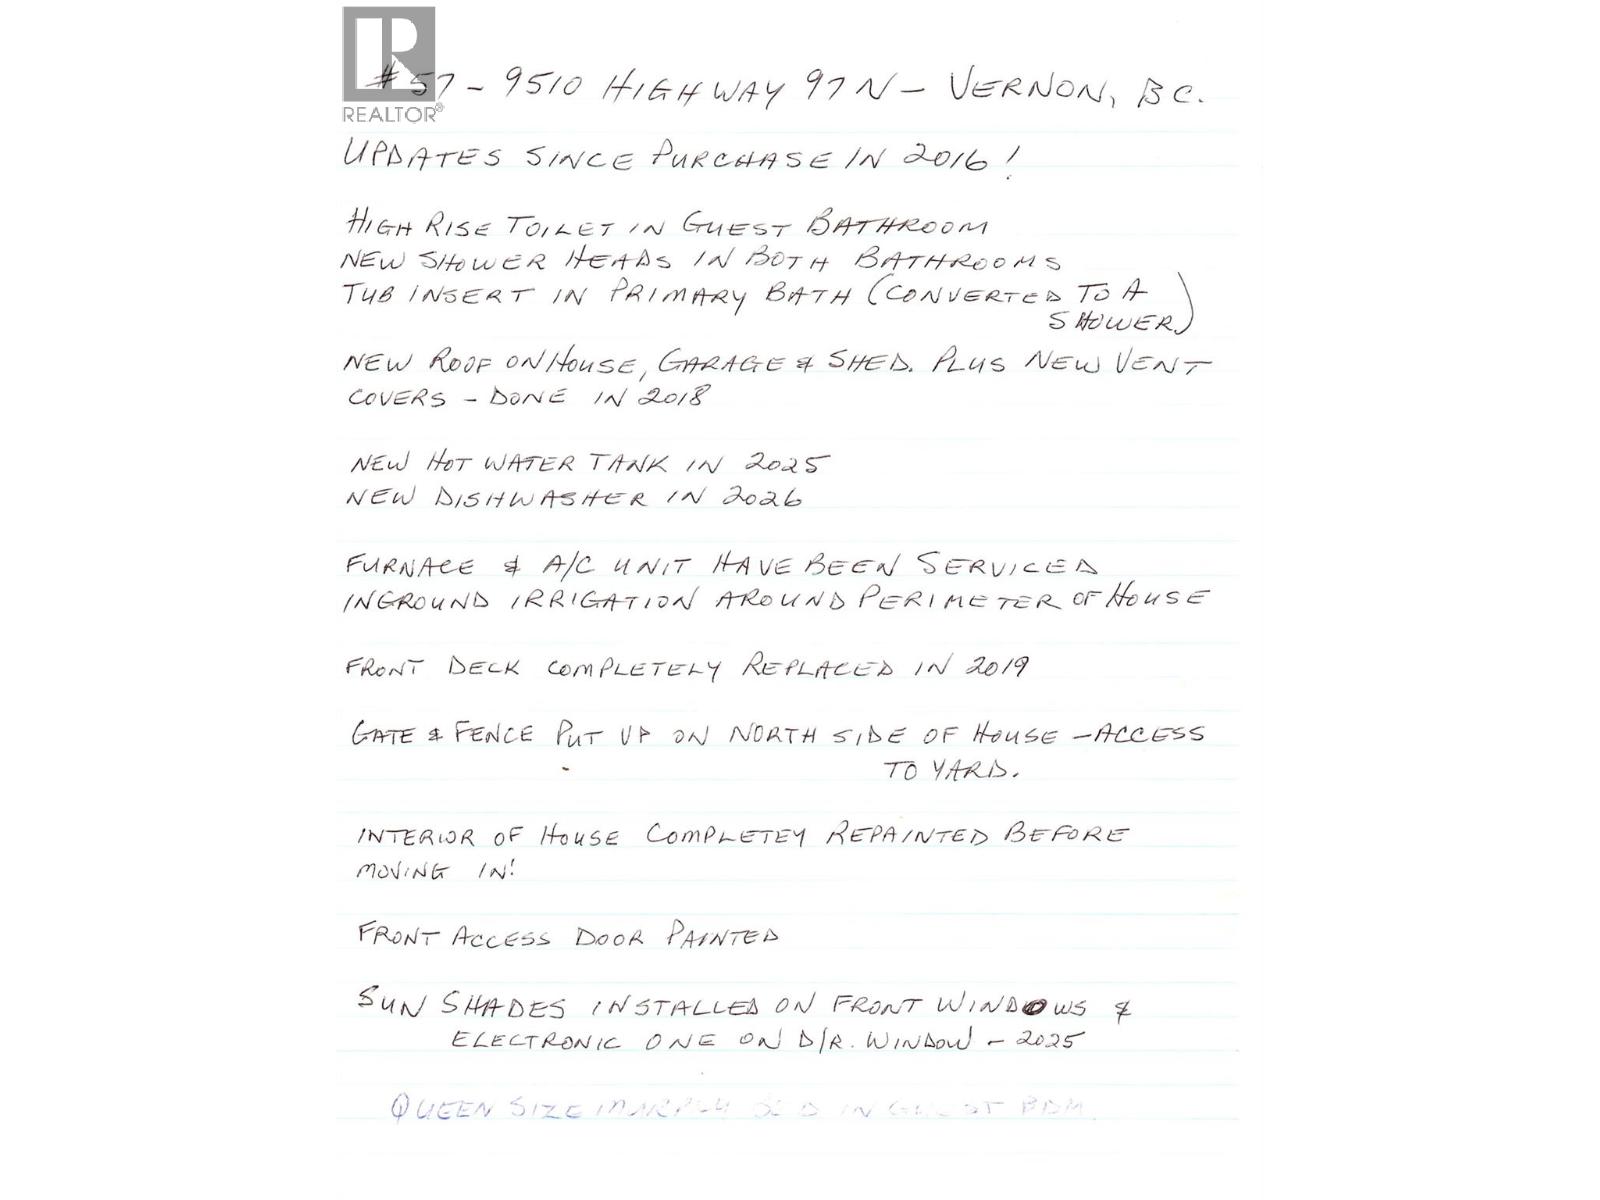 REALTOR®
#57 - 9510 HIGHWAY 97 N - VERNON, BC.
UPDATES SINCE PURCHASE IN 2016!
HIGH RISE TOILET IN GUEST BATHROOM
NEW SHOWER HEADS IN BOTH BATHROOMS
TUB INSERT IN PRIMARY BATH (CONVERTED TO A
SHOWER)
NEW ROOF ON HOUSE, GARAGE & SHED. PLUS NEW VENT
COVERS - DONE IN 2018
NEW HOT WATER TANK IN 2025
NEW DISHWASHER IN 2026
FURNACE & A/C UNIT HAVE BEEN SERVICED
INGROUND IRRIGATION AROUND PERIMETER OF HOUSE
FRONT DECK COMPLETELY REPLACED IN 2019
GATE & FENCE PUT UP ON NORTH SIDE OF HOUSE - ACCESS
TO YARD.
INTERIOR OF HOUSE COMPLETEY REPAINTED BEFORE
MOVING IN!
FRONT ACCESS DOOR PAINTED
SUN SHADES INSTALLED ON FRONT WINDOWS &
ELECTRONIC ONE ON D/R. WINDOW - 2025
QUEEN SIZE MURPHY BED IN GUEST BDM.